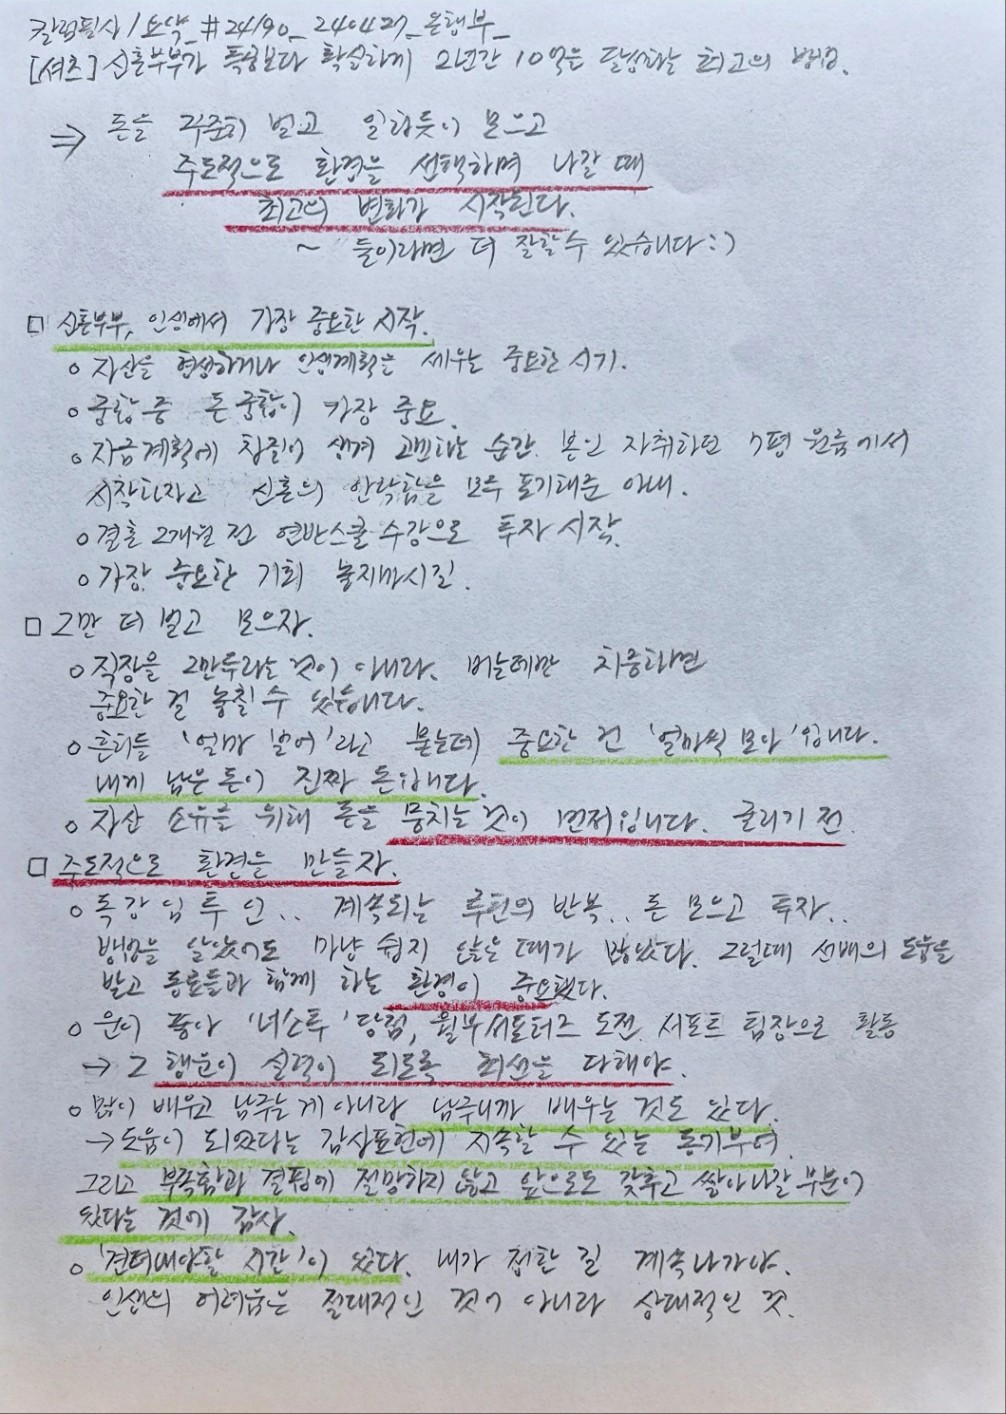 칼럼필사/요약_#24190_240427_은행부_
[셔츠] 신혼부부가 특공보다 확실하게 2년간 10억을 달성하는 최고의 방법.
⇒ 돈을 꾸준히 벌고 일하듯이 모으고
주도적으로 환경을 선택하며 나갈 때
최고의 변화가 시작된다.
~ 둘이라면 더 잘할 수 있습니다 :)
□ 신혼부부, 인생에서 가장 중요한 시작.
○ 자산을 형성하거나 인생계획을 세우는 중요한 시기.
○ 궁합 중 돈 궁합이 가장 중요.
○ 자금계획에 차질이 생겨 고민하는 순간. 본인 자취하던 7평 원룸에서
시작하자고 신혼의 안락함을 모두 포기해준 아내.
○ 결혼 2개월 전 열반스쿨 수강으로 투자 시작.
○ 가장 중요한 기회 놓치마시길.
□ 그만 더 벌고 모으자.
○ 직장을 그만두라는 것이 아니라. 버는데만 치중하면
중요한 걸 놓칠 수 있습니다.
○ 흔히들 '얼마 벌어'라고 묻는데 중요한 건 '얼마씩 모아'입니다.
내게 남은 돈이 진짜 돈입니다.
○ 자산 소유를 위해 돈을 뭉치는 것이 먼저입니다. 굴리기 전
□ 주도적으로 환경을 만들자.
○ 독강임투인.. 계속되는 루틴의 반복.. 돈 모으고 투자..
방법을 알았어도 마냥 쉽지 않은 때가 많았다. 그럴때 선배의 도움을
받고 동료들과 함께 하는 환경이 중요했다.
○ 운이 좋아 '너스투' 당첨, 월부서포터즈 도전 서포트 팀장으로 활동
→ 그 행운이 실력이 되도록 최선을 다해야.
○ 많이 배우고 남주는게 아니라 남주니까 배우는 것도 있다.
→ 도움이 되었다는 감사표현에 지속할 수 있는 동기부여.
그리고 부족함과 결핍에 절망하지 않고 앞으로도 갖추고 쌓아나갈 부분이
있다는 것에 감사.
○ '견뎌내야할 시간'이 있다. 내가 정한 길 계속나가야.
인생의 어려움은 절대적인 것이 아니라 상대적인 것.